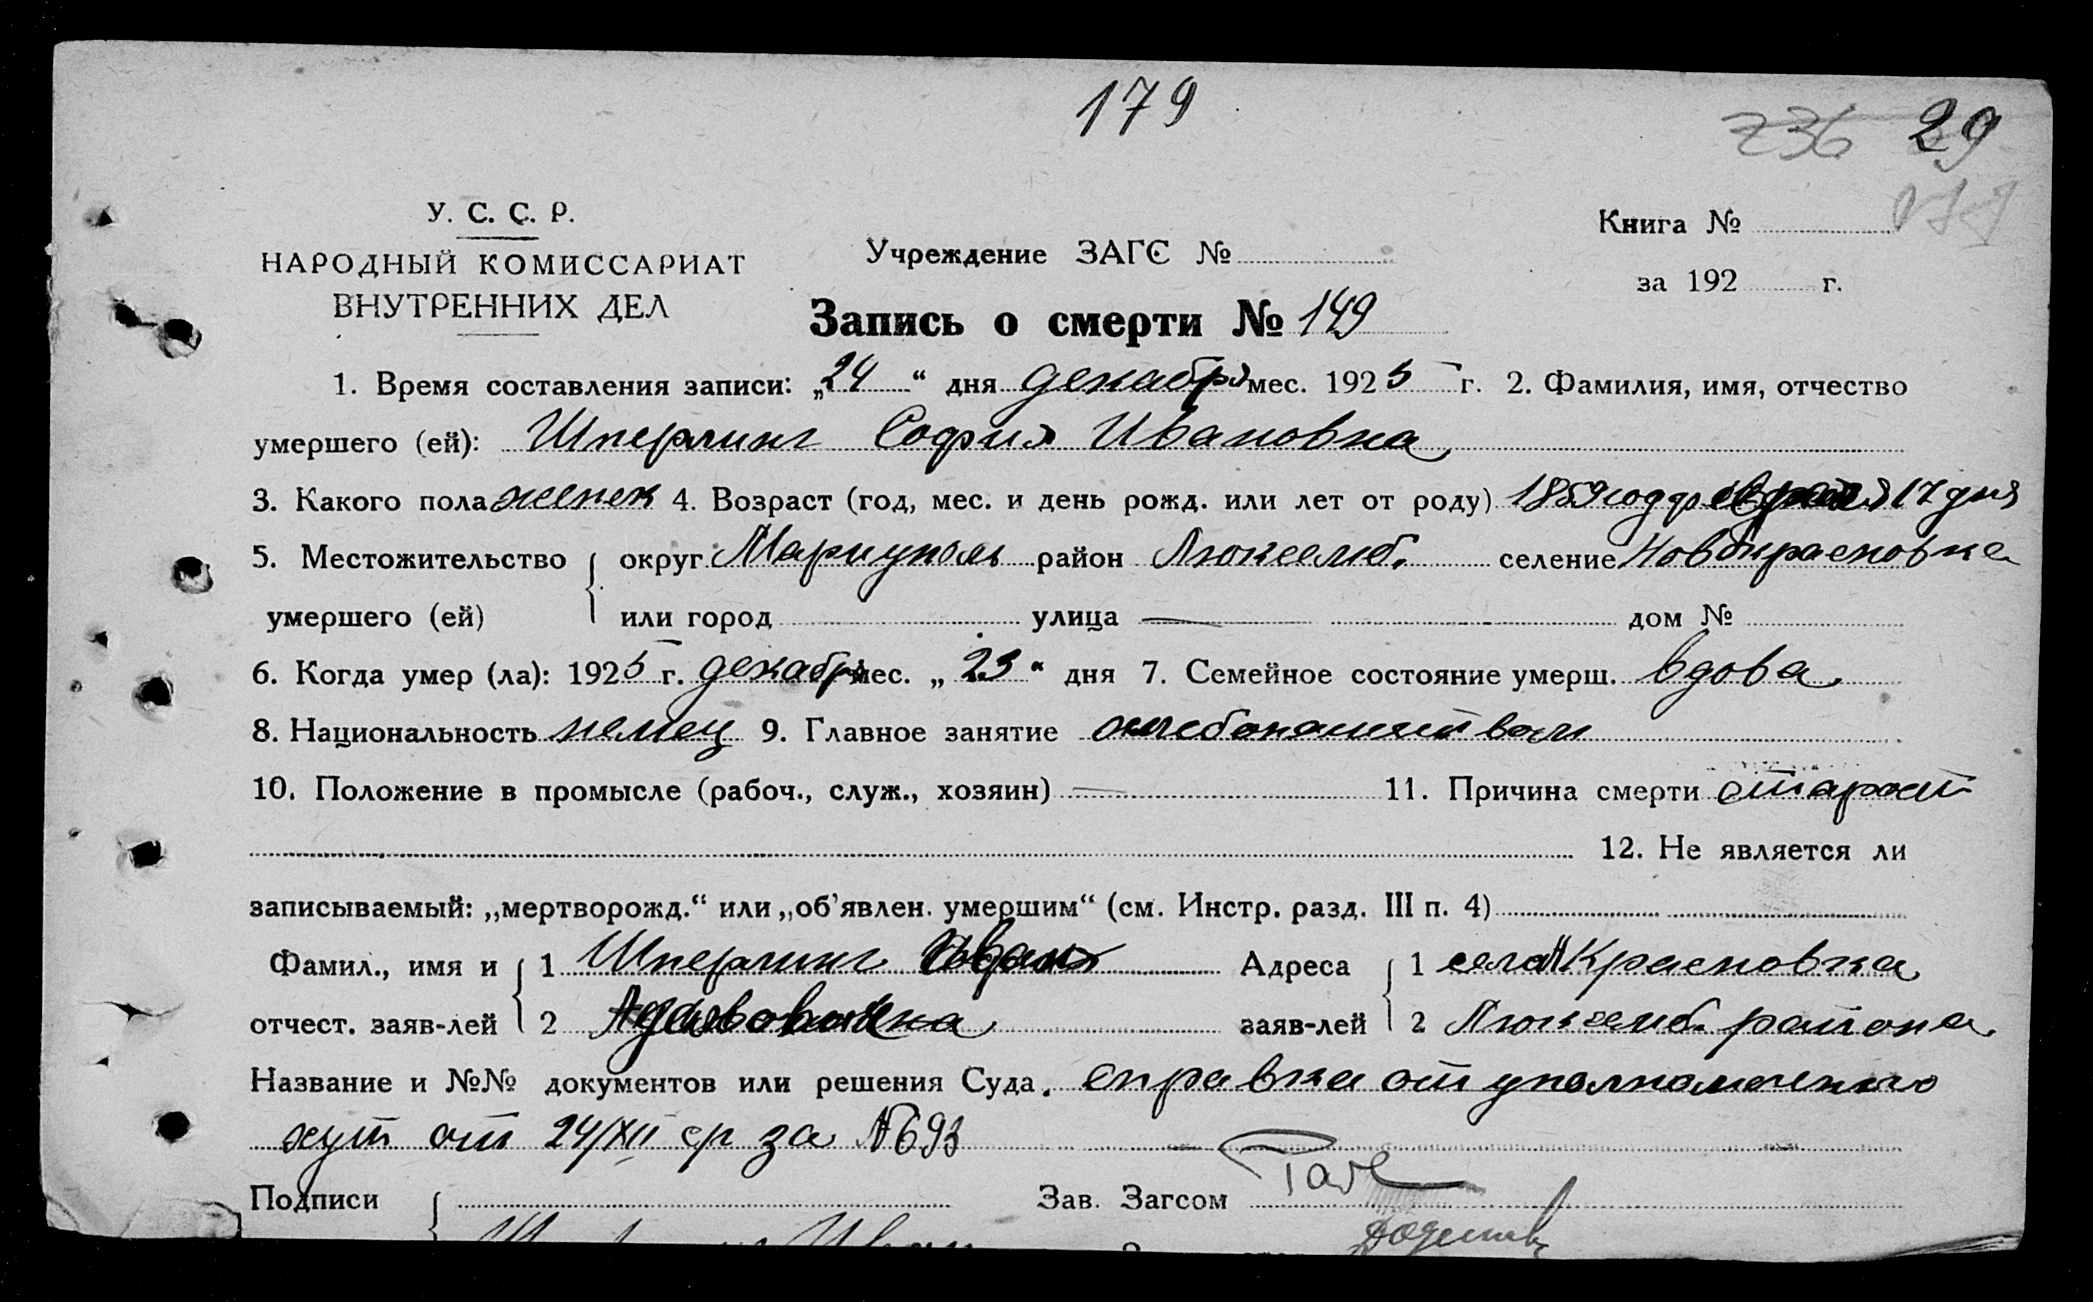 179
236 29
У. С. С. Р.
НАРОДНЫЙ КОМИССАРИАТ
ВНУТРЕННИХ ДЕЛ
Учреждение ЗАГС №
Книга №
за 192 г.
Запись о смерти № 149
1. Время составления записи: „24“ дня декабря мес. 1925 г. 2. Фамилия, имя, отчество
умершего (ей): Шперлинг София Ивановна
3. Какого пола женск 4. Возраст (год, мес. и день рожд. или лет от роду) 1859 год февраля 17 дня
5. Местожительство округ Мариуполь район Люксемб. селение Новокрасновка
умершего (ей) или город улица — дом №
6. Когда умер (ла): 1925 г. декабря мес. „23“ дня 7. Семейное состояние умерш. вдова
8. Национальность немец 9. Главное занятие
10. Положение в промысле (рабоч., служ., хозяин) — 11. Причина смерти старост
12. Не является ли
записываемый: „мертворожд.“ или „об'явлен. умершим“ (см. Инстр. разд. III п. 4)
Фамил., имя и 1 Шперлинг Иван Адреса 1 села Н Красновка
отчест. заяв-лей 2 заяв-лей 2 Люксемб. района
Название и №№ документов или решения Суда. справка от уполномоченного
хут от 24/XII ср за № 693
Подписи Зав. Загсом